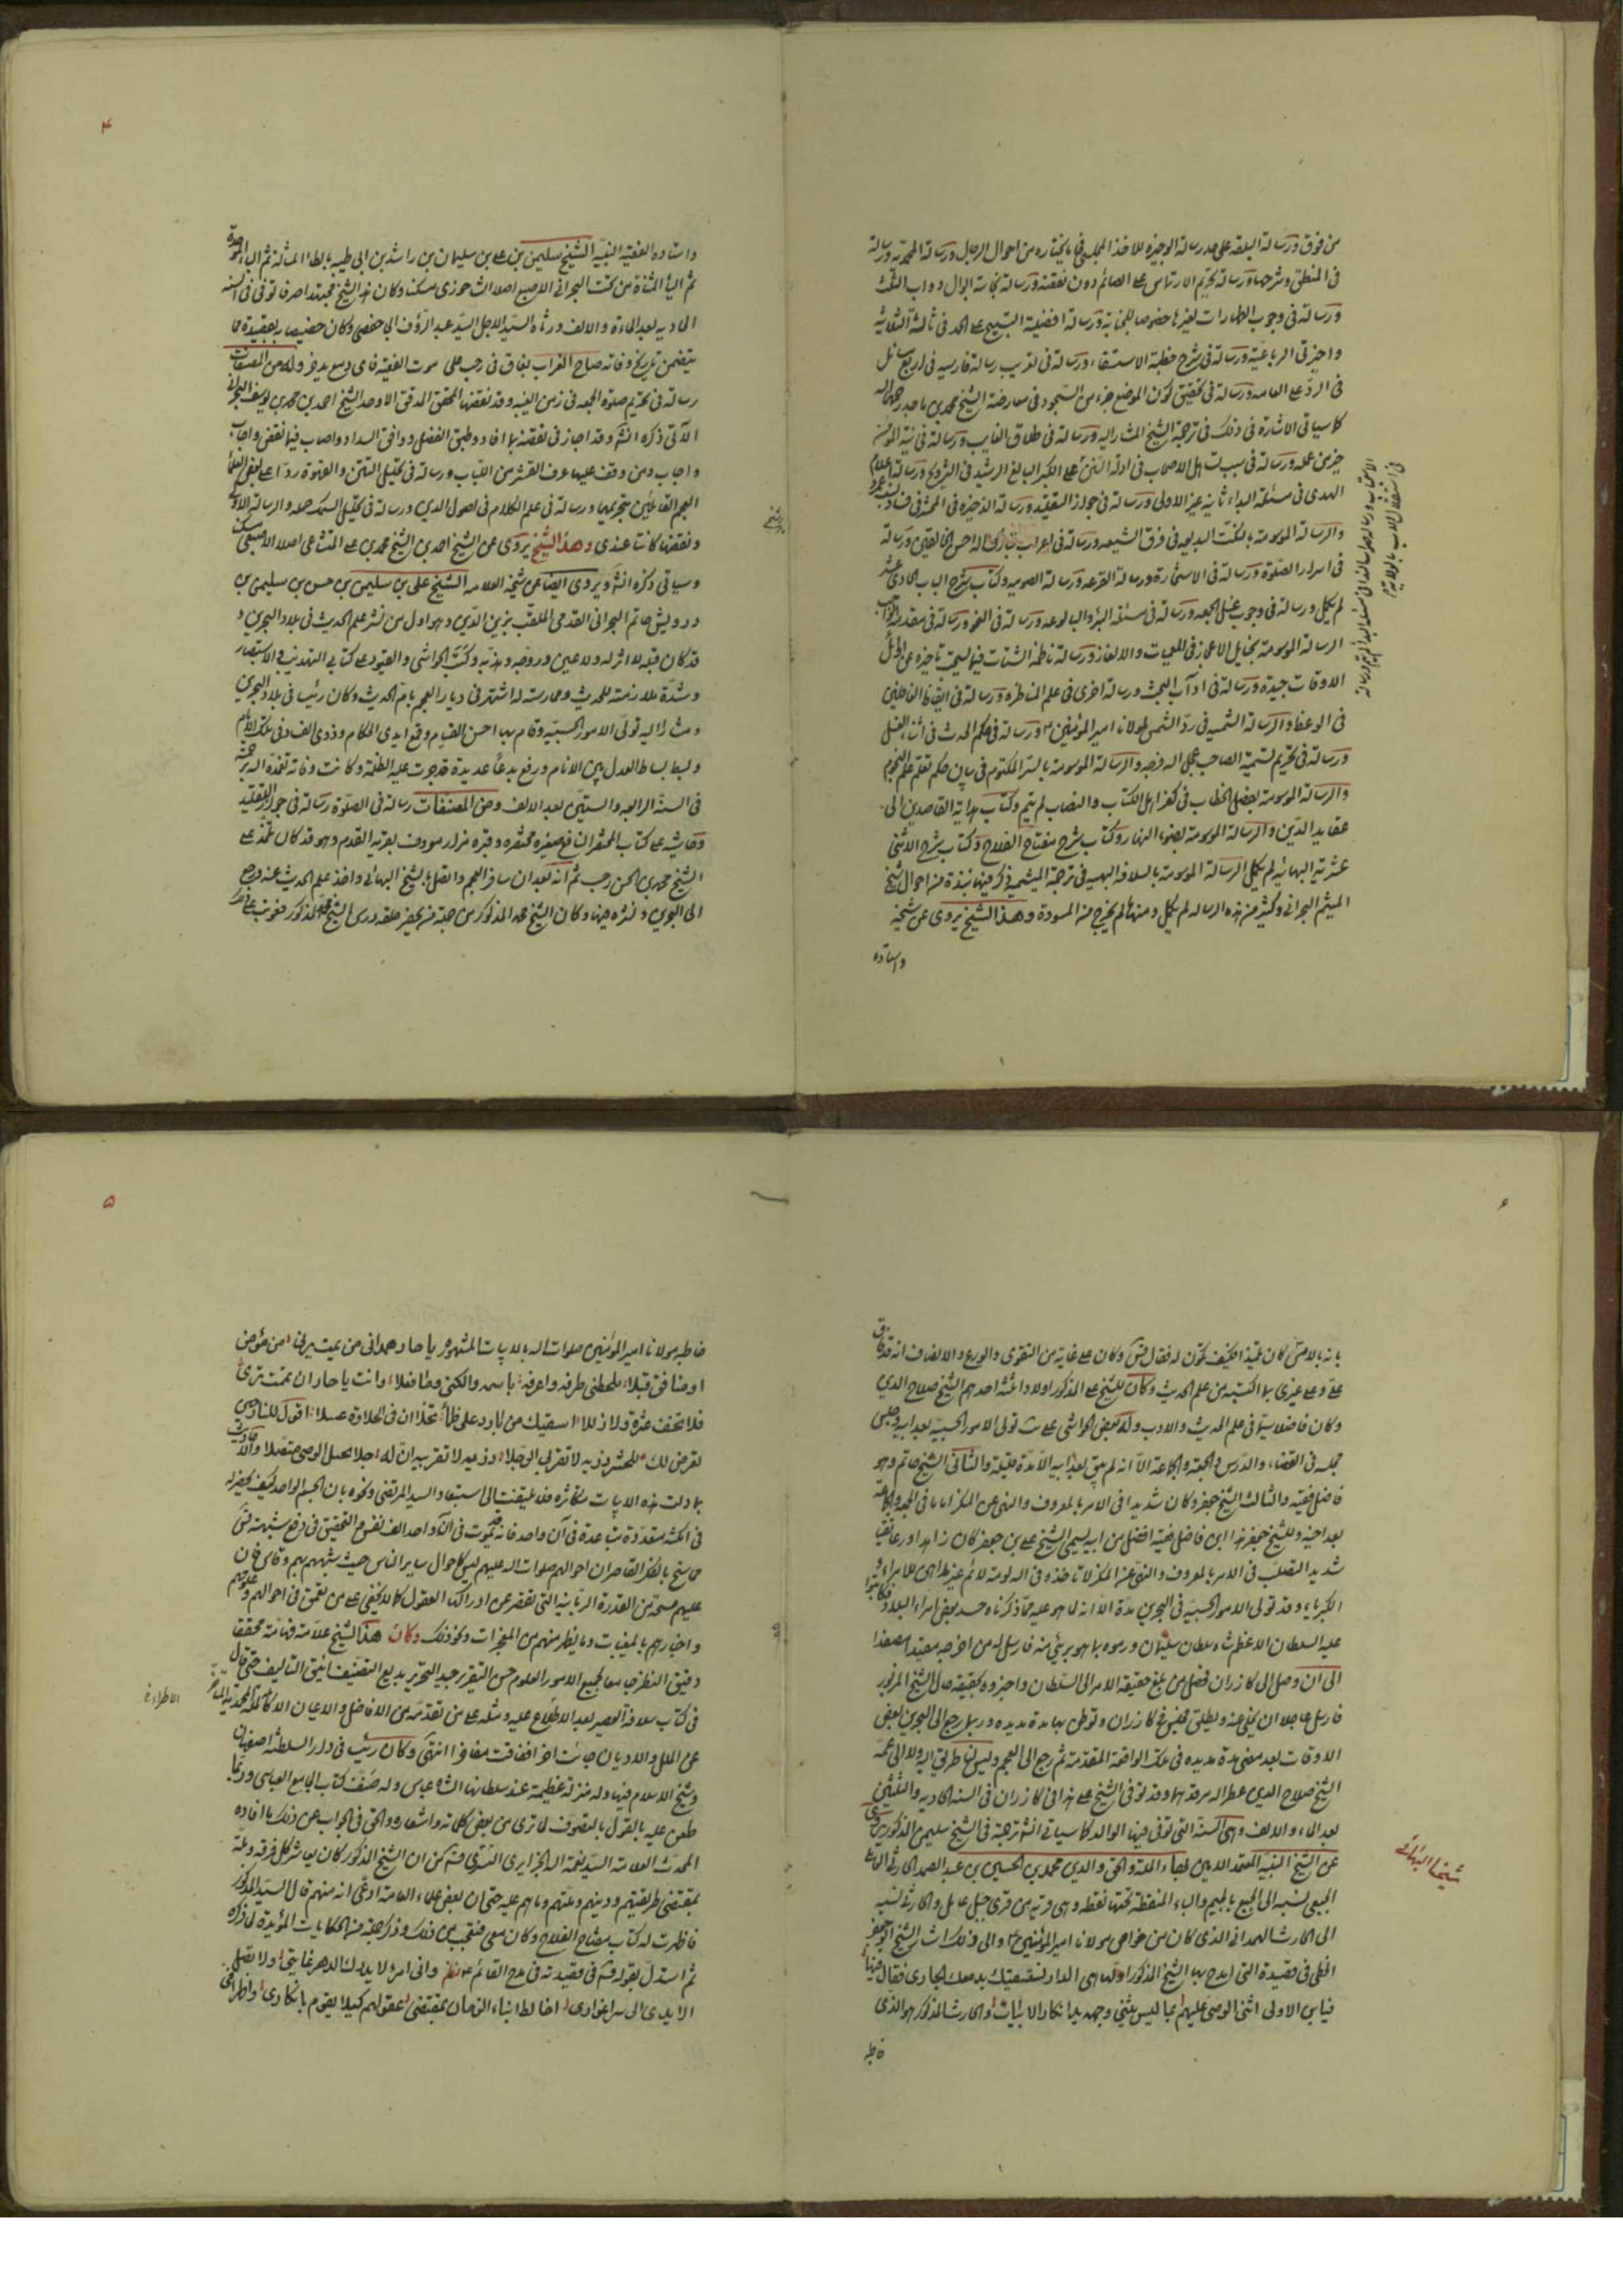 من فوق ورسالة البلغة على حد رسالة الوجيزة للاخذ المجلسي فيما يختاره من احوال الرجال ورسالة المحمدية ورسالة
في المنطق وشرحها ورسالة تحريم الارتماس على الصائم دون نقضه ورسالة نجاسة ابوال دواب الثلث
ورسالة في وجوب الطهارات لغيرها خصوصا الجنابة ورسالة افضلية التسبيح على الحمد في ثالثة الثلاثية
واخيرتي الرباعية ورسالة في شرح خطبة الاستسقاء ورسالة في رسالة فارسية في اربع مسائل
في الرد على العامة ورسالة في تحقيق كون الموضع جزء من السجود في معارضة الشيخ محمد بن ماجد رحمه الله
كما سياتي الاشارة في ذلك في ترجمة الشيخ المشار اليه ورسالة في طلاق الغايب ورسالة في نية المؤمن
خير من عمله ورسالة في اهل الاصحاب في ادلة على البكر البالغ الرشيد في التزويج ورسالة اعلام
الهدى في مسئلة البداء ثانية غير الاولى ورسالة في جواز التقليد ورسالة الذخيرة في المحشر في فساد نسب عمر
والرسالة الموسومة بالنكت البديعة في فرق الشيعة ورسالة في اعراب تبارك الله احسن الخالقين ورسالة
في اسرار الصلوة ورسالة في الاستخارة ورسالة القرعة ورسالة الصومية وكتاب شرح الباب الحادي عشر
لم يكمل ورسالة في وجوب غسل الجمعة ورسالة في مسئلة البئر والبالوعة ورسالة في النحو ورسالة في مقدمة الواجب
الرسالة الموسومة بمخايل الاعجاز في المعميات والالغاز ورسالة ناظمة الشتات فيما يستحب تاخيره عن اوائل
الاوقات جيدة ورسالة في اداب البحث ورسالة اخرى في علم المناظرة ورسالة في ايقاظ الغافلين
في الوعظ والرسالة الشمسية في رد الشمس لمولانا امير المؤمنين ع ورسالة في حكم الحدث في اثناء الغسل
ورسالة في تحريم تسمية الصاحب عجل الله فرجه والرسالة الموسومة بالسر المكتوم في بيان حكم تعلم علم النجوم
والرسالة الموسومة بفصل الخطاب في كفر اهل الكتاب والنصاب لم يتم وكتاب هداية القاصدين الى
عقايد الدين والرسالة الموسومة بضوء النهار وكتاب شرح مفتاح الفلاح وكتاب شرح الاثني
عشرية البهائية لم يكمل الرسالة الموسومة بالسلافة البهية في ترجمة الميثمية ذكر فيها نبذة من احوال شيخ
الميثم البحراني وكثير من هذه الرسالة لم يكمل ومنها ما لم يخرج من المسودة وهذا الشيخ يروي عن شيخه
واستاده
۴
واستاده الفقيه النبيه الشيخ سليمن بن علي بن سليمان بن راشد بن ابي ظبية بالظاء المشالة ثم الباء الموحدة
ثم الياء المثناة من تحت البحراني الاصبعي اصلا الشاخوزي مسكنا وكان هذا الشيخ مجتهدا صرفا توفي في السنة
الحادية بعد المائة والالف ورثاه السيد الاجل السيد عبد الرؤف الجد حفصي وكان خصيصا به بقصيدة مما
يتضمن تاريخ وفاته صاح الغراب بغاق في رجب على موت الفقيه فاي دمع يدفق وله من المصنفات
رسالة في تحريم صلوة الجمعة في زمن الغيبة وقد نقضها المحقق المدقق الاوحد الشيخ احمد بن محمد بن يوسف البحراني
الآتي ذكره انشاء وقد اجاز في نقضه بما افاد وطبق الفضل ووافق السداد واصاب فيما نقض واجاب
واجاب ومن وقف عليها عرف القشر من اللباب ورسالة في تحليل التتن والقهوة ردا على بعض العلماء
العجم القائلين بتحريمها ورسالة في علم الكلام في اصول الدين ورسالة في تحليل السمك جملة والرسالة الاولى
ونقضها كانت عندي وهذا الشيخ يروي عن الشيخ احمد بن الشيخ محمد بن علي المقشاعي اصلا الاصبعي مسكنا
وسياتي ذكره انشاء ويروي ايضا عن شيخه العلامة الشيخ علي بن سليمن بن حسن بن سليمن بن
درويش حاتم البحراني القدمي الملقب بزين الدين وهو اول من نشر علم الحديث في بلاد البحرين و
قد كان قبله لا اثر له ولا عين وروجه وهذبه وكتب الحواشي والقيود على كتابي التهذيب والاستبصار
وشدة ملازمته للحديث وممارسته له اشتهر في ديار العجم بام الحديث وكان رئيسا في بلاد البحرين
ومشارا اليه تولى الامور الحسبية وقام بها احسن القيام وقمع ايدي الحكام وذوي الفساد في تلك الايام
وبسط بساط العدل بين الانام ورفع بدعا عديدة قد جرت عليه الظلمة وكانت وفاته تغمده الله برحمته
في السنة الرابعة والستين بعد الالف ومن المصنفات رسالة في الصلوة رسالة في جواز التقليد
وحاشية على كتاب المختصر النافع صغيرة مختصرة وقبره مزار معروف بقرية القدم وهو قد كان تلمذ على
الشيخ محمد بن الحسن رجب ثم انه بعد ان سافر العجم واتصل بالشيخ البهائي واخذ علم الحديث عنه ورجع
الى البحرين ونشره فيها وكان الشيخ محمد المذكور من جملة من يحضر حلقة درس الشيخ علي المذكور فعوتب على ذلك
۶
بانه بالامس كان تلميذا فكيف تكون له فقال قس وكان على غاية من التقوى والورع والانصاف انه قد فاق
علي وعلى غيري بما اكتسبه من علم الحديث وكان للشيخ علي المذكور اولاد ثلثة احدهم الشيخ صلاح الدين
وكان فاضلا سيما في علم الحديث والادب وله بعض الحواشي على تولى الامور الحسبية بعد ابيه وجلس
مجلسه في القضاء والدرس والجمعة والجماعة الا انه لم يبق بعد ابيه الا مدة قليلة والثاني الشيخ حاتم وهو
فاضل فقيه والثالث الشيخ جعفر وكان شديدا في الامر بالمعروف والنهي عن المنكر اماما في الجمعة والجماعة
بعد اخيه وللشيخ جعفر هذا ابن فاضل فقيه افضل من ابيه يسمى الشيخ علي بن جعفر كان زاهدا ورعا تقيا
شديد التصلب في الامر بالمعروف والنهي عن المنكر لا تاخذه في الله لومة لائم غير مداهن للامراء و
الكبراء وقد تولى الامور الحسبية في البحرين مدة الا انه لما هو عليه مما ذكرناه حسده بعض امراء البلاد فكاتبوا
عليه السلطان الاعظم شاه سلطان سليمان ورموه بما هو بريئ منه فارسل له من اخرجه مقيدا مصفدا
الى ان وصل الى كازران فحصل من بلغ حقيقة الامر الى السلطان واخبروه بحقيقة حال الشيخ المزبور
فارسل عاجلا ان يخلى عنه ويطلق فبقى في كازران وتوطن بها مدة مديدة وربما رجع الى البحرين بعض
الاوقات بعد مضي مدة مديدة في تلك الواقعة المتقدمة ثم رجع الى العجم وليس لنا طريق اليه ولا الى عمه
الشيخ صلاح الدين عطر الله مرقدهما وقد توفي الشيخ علي هذا في كازران في السنة الحادية والثلثين
بعد المائة والالف وهي السنة التي توفي فيها الوالد كما سياتي انشاء ترجمته في الشيخ سليمن المذكور يروي
عن الشيخ النبيه المعتمد الامين بهاء الملة والحق والدين محمد بن الحسين بن عبد الصمد الحارثي العاملي
الجبعي نسبة الى الجبع بالجيم والباء المنقطة تحتها نقطة وهي قرية من قرى جبل عامل والحارثي نسبة
الى الحارث الهمداني الذي كان من خواص مولانا امير المؤمنين ع والى ذلك اشار الشيخ ابو جعفر
الخطي في قصيدة التي امدح بها الشيخ المذكور اولها هي الدار تستسقيك مدمعك الجاري فقال فيها
فيابن الاولى اثنى الوصي عليهم بما ليس يثني وجهه يد انكار الابيات والحارث المذكور هو الذي
خاطبه
شيخنا البهائي
۵
خاطبه مولانا امير المؤمنين صلوات الله بالابيات المشهورة يا حار همدان من يمت يرني من مؤمن
او منافق قبلا يلحظني طرفه واعرفه باسمه والكنى وما فعلا وانت يا حار ان تمت ترني
فلا تخف عثرة ولا زللا اسقيك من بارد على ظمأ تخاله في الحلاوة عسلا اقول للنار حين
تعرض لك للحشر ذريه لا تقربي الرجلا ذريه لا تقربيه ان له حبلا بحبل الوصي متصلا
بما دلت هذه الابيات متكاثرة فلا يلتفت الى استبعاد السيد المرتضى ونحوه بان الجسم الواحد كيف يحضر
في امكنة متعددة متباعدة في آن واحد فانه قد يموت في آن واحد الف نفس والتحقيق في دفع شبهته
ما سنح بالفكر القاصر ان احوالهم صلوات الله عليهم ليس كاحوال ساير الناس حيث شبههم بهم وقاس فان
عليهم مسحة من القدرة الربانية التي تقصر عن ادراكها العقول كما لا يخفى على من تعمق في احوالهم وعلومهم
واخبارهم بالمغيبات وما يظهر منهم من المعجزات ونحو ذلك وكان هذا الشيخ علامة فهامة محققا
دقيق النظر جامعا لجميع العلوم حسن التقرير جيد التحرير بديع التصنيف انيق التاليف حتى قال
في كتاب سلافة العصر بعد الاطلاع عليه وفضله على من تقدمه من الافاضل والاعيان
عن الملل والاديان جاءت اخرا ففاقت مفاخرا انتهى وكان رئيسا في دار السلطنة اصفهان
وشيخ الاسلام فيها وله منزلة عظيمة عند سلطانها الشاه عباس وله صنف كتاب الجامع العباسي وربما
طعن عليه بالقول بالتصوف لما ترى من بعض كلماته واشعاره والحق في الجواب عن ذلك ما افاده
المحدث العلامة السيد نعمة الله الجزايري التستري من ان الشيخ المذكور كان يعاشر كل فرقة وملة
بمقتضى طريقتهم ودينهم وملتهم وما هم عليه حتى ان بعض علماء العامة ادعى انه منهم قال السيد المذكور
فاظهرت له كتاب مفتاح الفلاح وكان معي فتعجب من ذلك وذكر جملة من الحكايات المؤيدة لما ذكره
ثم استدل بقوله في قصيدته في مدح القائم ع واني امرؤ لا يدرك الدهر غايتي ولا تصل
الايدي الى سر اغواري اخالط ابناء الزمان بمقتضى عقولهم كيلا يفوهوا بانكاري واظهر اني